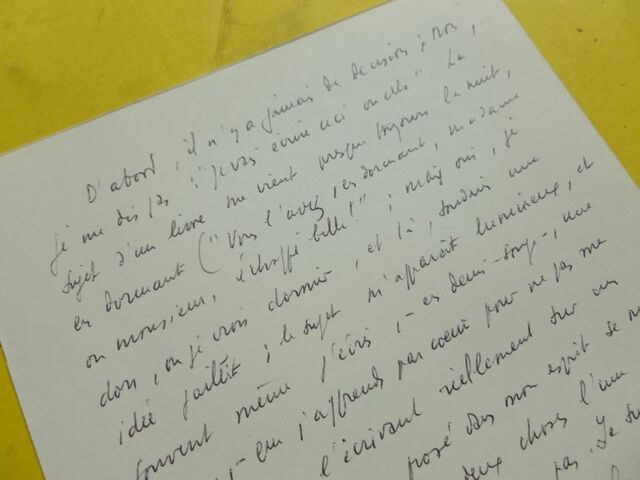 D'abord, il n'y a jamais de decision : non,
je me dis pas : "je vais écrire ceci ou cela". Le
sujet d'un livre me vient presque toujours la nuit,
en dormant ("Vous l'avez, en dormant, madame
ou monsieur, échappé belle!" ; mais oui, je
dors, ou je vais dormir, et là, soudain une
idée jaillit ; le sujet m'apparaît lumineux, et
souvent même j'écris, - en demi-songe -, une
j'apprends par coeur pour ne pas me
l'écrivant réellement sur un
posé dans mon esprit se
deux choses l'une
pas. Je